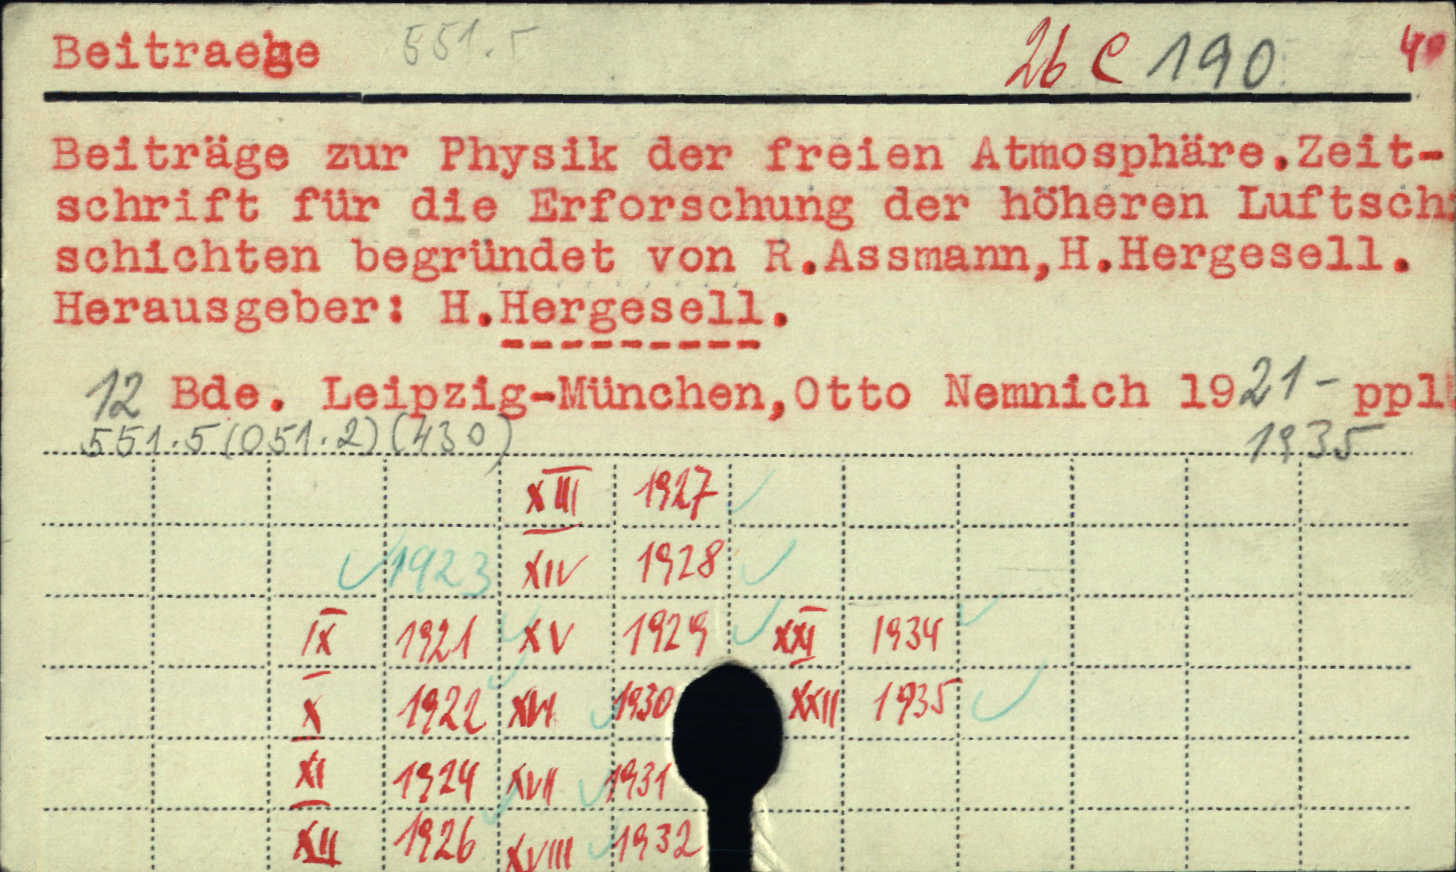 Beitraege 551.5 26 e 190 40
Beiträge zur Physik der freien Atmosphäre.Zeit-
schrift für die Erforschung der höheren Luftsch
schichten begründet von R.Assmann,H.Hergesell.
Herausgeber: H.Hergesell.
12 Bde. Leipzig-München,Otto Nemnich 1921- ppl
551.5(051.2)(430) 1935
XIII 1927
1923 XIV 1928
IX 1921 XV 1929 XXI 1934
X 1922 XVI 1930 XXII 1935
XI 1924 XVII 1931
XII 1926 XVIII 1932